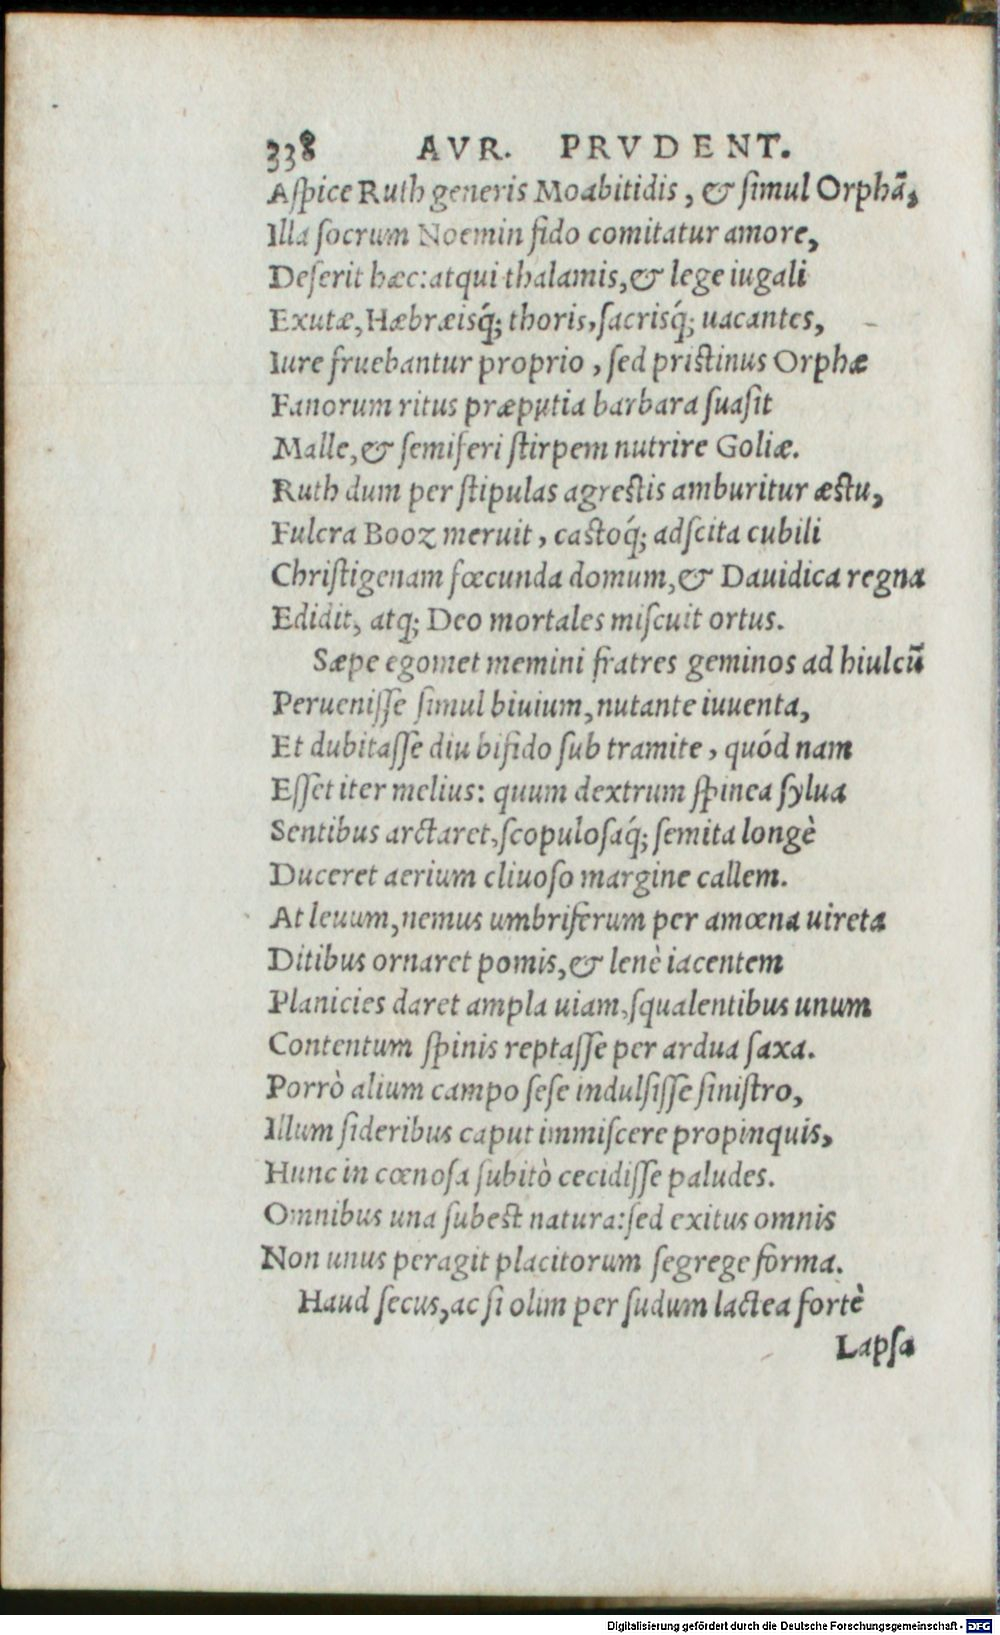 338 AVR. PRVDENT.
Aſpice Ruth generis Moabitidis, & ſimul Orphā,
Illa ſocrum Noemin fido comitatur amore,
Deſerit hæc: atqui thalamis, & lege iugali
Exutæ, Hæbræisq́; thoris, ſacrisq́; uacantes,
Iure fruebantur proprio, ſed priſtinus Orphæ
Fanorum ritus præputia barbara ſuaſit
Malle, & ſemiferi ſtirpem nutrire Goliæ.
Ruth dum per ſtipulas agreſtis amburitur æſtu,
Fulcra Booz meruit, caſtoq́; adſcita cubili
Chriſtigenam fœcunda domum, & Dauidica regna
Edidit, atq; Deo mortales miſcuit ortus.
Sæpe egomet memini fratres geminos ad hiulcū
Perueniſſe ſimul biuium, nutante iuuenta,
Et dubitaſſe diu bifido ſub tramite, quód nam
Eſſet iter melius: quum dextrum ſpinea ſylua
Sentibus arctaret, ſcopuloſaq́; ſemita longè
Duceret aerium cliuoſo margine callem.
At leuum, nemus umbriferum per amœna uireta
Ditibus ornaret pomis, & lenè iacentem
Planicies daret ampla uiam, ſqualentibus unum
Contentum ſpinis reptaſſe per ardua ſaxa.
Porrò alium campo ſeſe indulſiſſe ſiniſtro,
Illum ſideribus caput immiſcere propinquis,
Hunc in cœnoſa ſubitò cecidiſſe paludes.
Omnibus una ſubeſt natura: ſed exitus omnis
Non unus peragit placitorum ſegrege forma.
Haud ſecus, ac ſi olim per ſudum lactea fortè
Lapſa
Digitalisierung gefördert durch die Deutsche Forschungsgemeinschaft - DFG